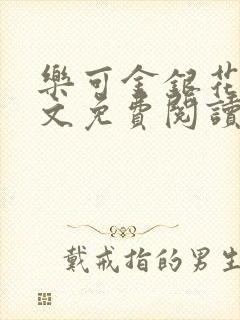 樂可金銀花
文免費閱讀
戴戒指的男生